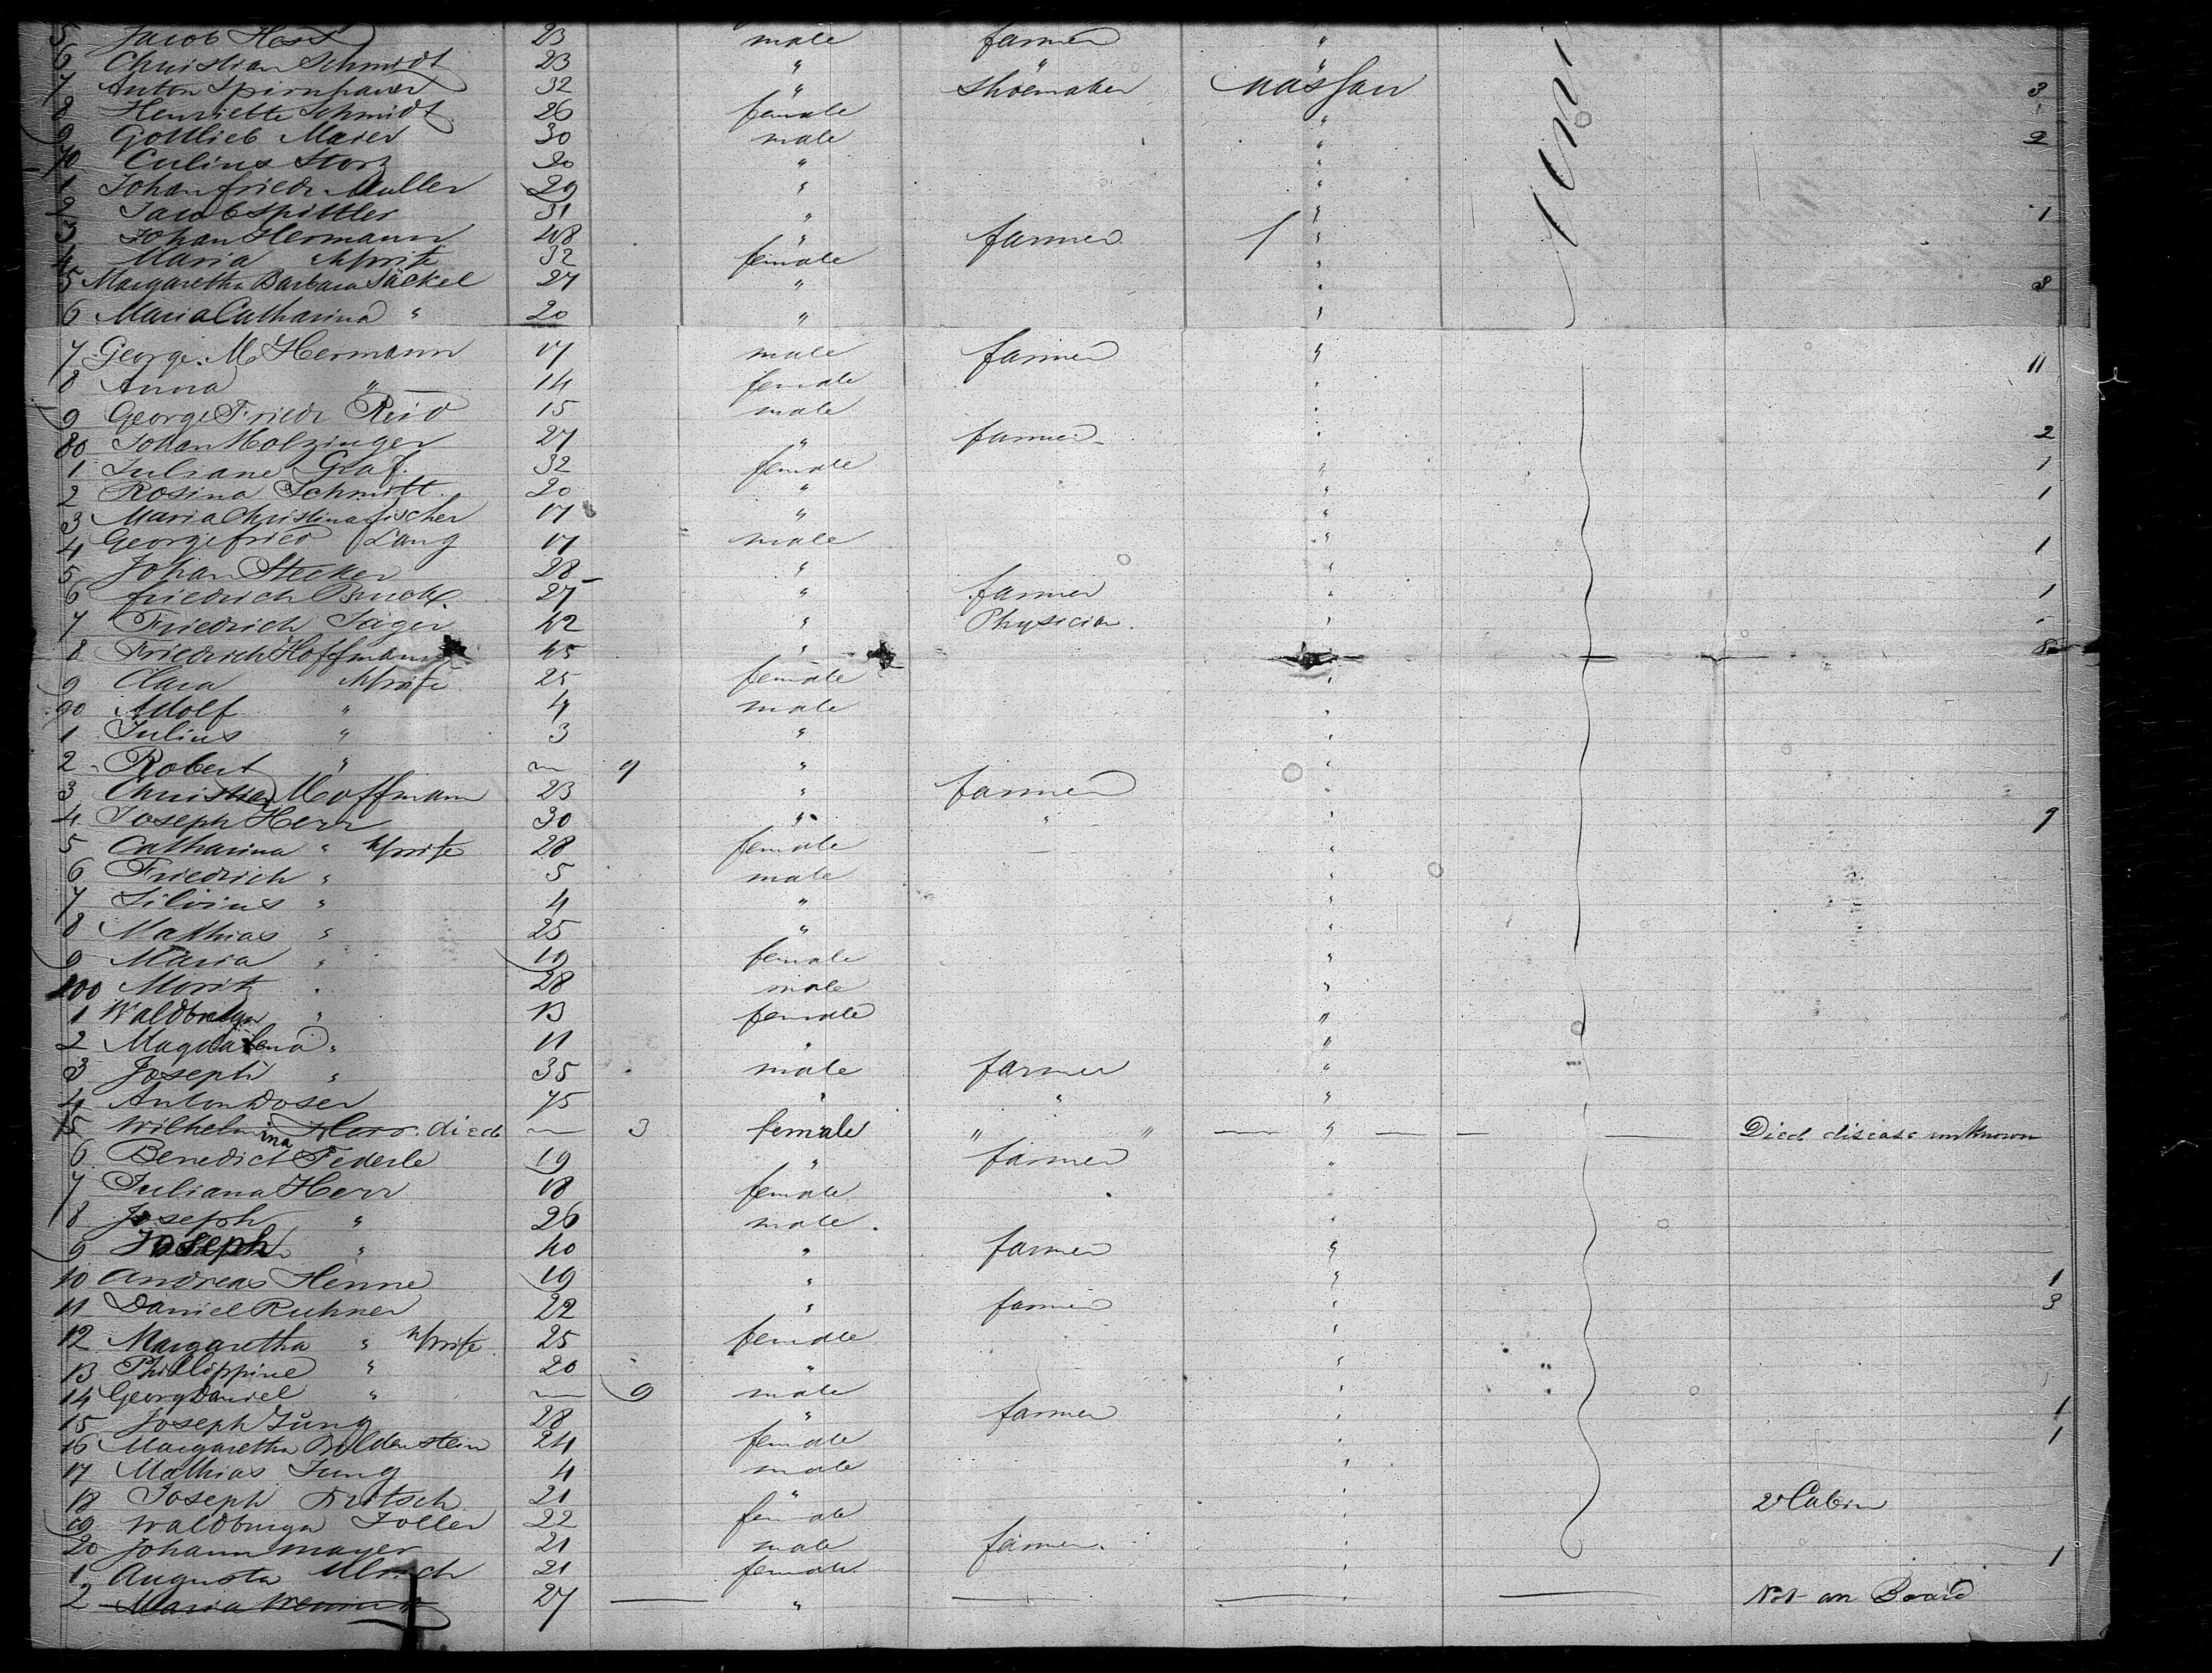 5 Jacob Hess 23 male farmer "
6 Christian Schmidt 23 " " "
7 Anton 32 " Shoemaker Nassau 3
8 Henriette Schmidt 26 female " 1
9 Gottlieb Maier 30 male " 2
70 Culius Storz 20 " "
1 Johan friedr Muller 29 " "
2 Jacob Spittler 31 " " 1
3 Johan Hermann 48 " farmer "
4 Maria " wife 32 female "
5 Margaretha Barbara Jäckel 27 " " 3
6 Maria Catharina " 20 " "
7 George M Hermann 17 male farmer " 11
8 Anna " 14 female "
9 George Friedr Reid 15 male "
80 Johan Holzinger 27 " farmer " 2
1 Juliane Graf 32 female " 1
2 Rosina Schmidt 20 " " 1
3 Maria Christina fischer 17 " "
4 George fried Lang 17 male " 1
5 Johan Stecker 28 " "
6 friedrich 27 " farmer " 1
7 Friedrich Jäger 42 " Physician "
8 Friedrich Hoffmann 45 " "
9 Clara " wife 25 female "
90 Adolf " 4 male "
1 Julius " 3 " "
2 Robert " ~ 9 " "
3 Christian Hoffmann 23 " farmer "
4 Joseph Herr 30 " " " 9
5 Catharina " wife 28 female "
6 Friedrich " 5 male "
7 Silvius " 4 " "
8 Mathias " 25 " "
9 Maria " 19 female "
100 Moritz " 28 male "
1 Waldburga " 13 female "
2 Magdalena " 11 " "
3 Joseph " 35 male farmer "
4 Anton Doser 45 " " "
5 Wilhelmina Herr died ~ 3 female " " " Died disease unknown
6 Benedict Federle 19 " farmer "
7 Juliana Herr 18 female "
8 Joseph " 26 male "
9 Joseph " 40 " farmer "
10 Andreas Henne 19 " " 1
11 Daniel Ruhner 22 " farmer " 3
12 Margaretha " wife 25 female "
13 Phillippine " 20 " "
14 Georg Daniel " ~ 9 male "
15 Joseph Jung 28 " farmer " 1
16 Margaretha Bildenstein 24 female " 1
17 Mathias Jung 4 male "
18 Joseph Fritsch 21 " " 2d Cabin
19 Waldburga Joller 22 female "
20 Johann mayer 21 male farmer " 1
1 Augusta Ulrich 21 female "
2 Maria 27 " " Not on Board